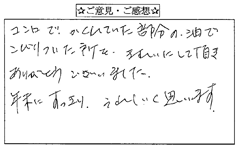 ☆ご意見・ご感想☆
コンロで、かくれていた部分の油で
こびりついた汚れを、きれいにして頂き
ありがとうございました。
年末にすっきり、うれしく思います